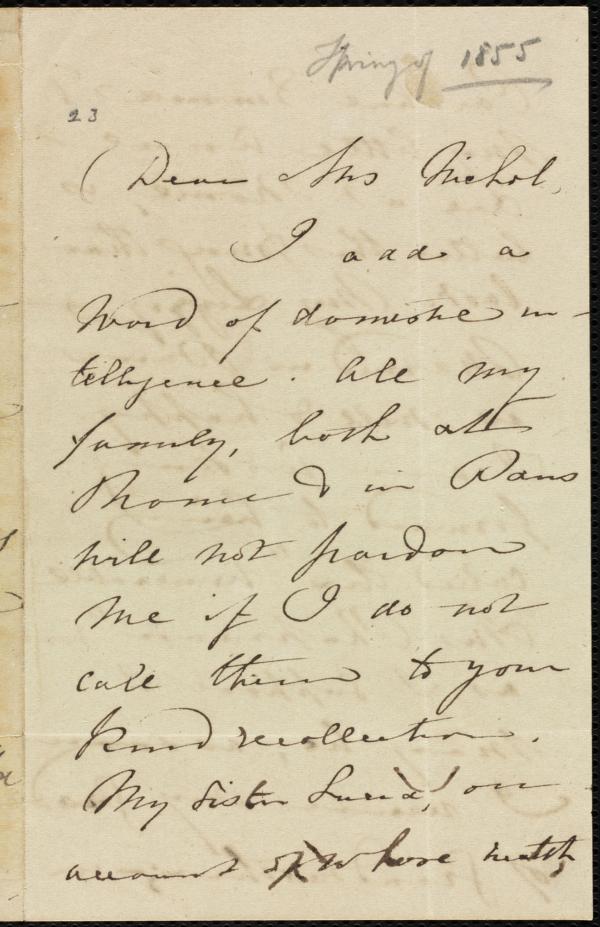 Spring of 1855
23
(Dear Mrs Nichol,
I add a
word of domestic in-
telligence. All my
family, both at
home & in Paris
will not pardon
me if I do not
call them to your
kind recollection.
My sister Lucia, on
account of whose health